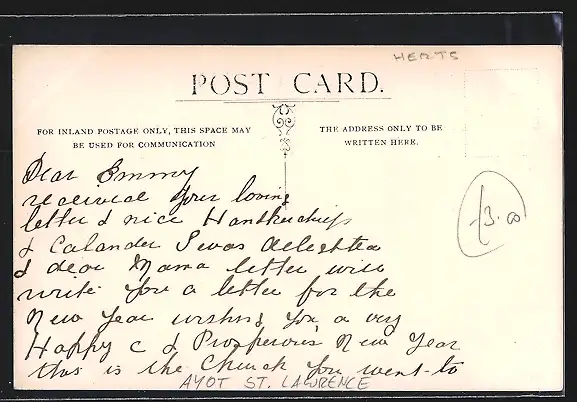 HERTS
POST CARD.
FOR INLAND POSTAGE ONLY, THIS SPACE MAY
BE USED FOR COMMUNICATION
THE ADDRESS ONLY TO BE
WRITTEN HERE.
Dear Emmy
received your loving
letter & nice Handkerchiefs
& Calander I was delighted
& dear Mama letter will
write you a letter for the
New Year wishing you a very
Happy & Prosperous New Year
this is the Church you went to
AYOT ST. LAWRENCE
£3.00